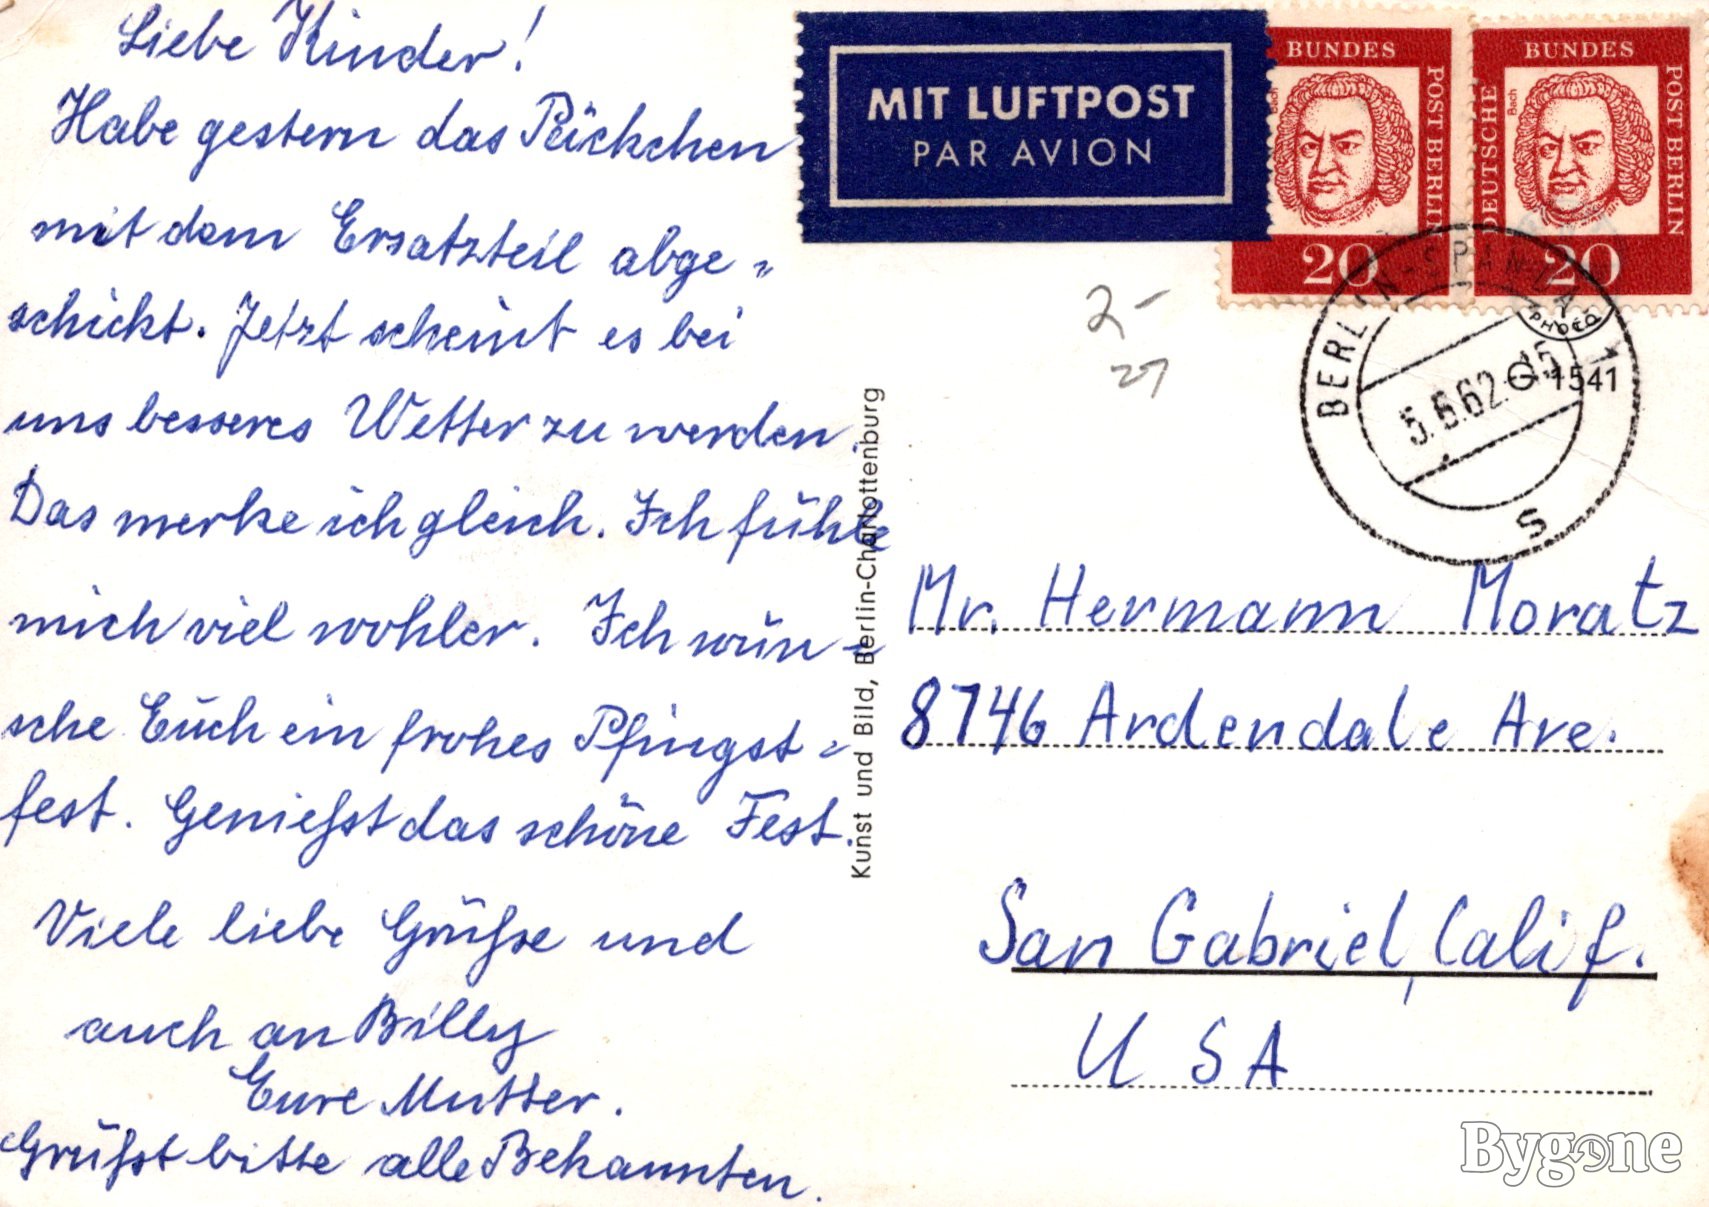 Liebe Kinder!
Habe gestern das Päckchen
mit dem Ersatzteil abge=
schickt. Jetzt scheint es bei
uns besseres Wetter zu werden.
Das merke ich gleich. Ich fühle
mich viel wohler. Ich wün=
sche Euch ein frohes Pfingst=
fest. Genießt das schöne Fest.
Viele liebe Grüße und
auch an Billy
Eure Mutter.
Grüßt bitte alle Bekannten.
Kunst und Bild, Berlin-Charlottenburg
MIT LUFTPOST
PAR AVION
BUNDES
POST BERLIN
Bach
20
DEUTSCHE
BUNDES
POST BERLIN
Bach
20
2-
27
BERLIN-SPANDAU 1
5.6.62.
S
PHOCO
1541
Mr. Hermann Moratz
8746 Ardendale Ave.
San Gabriel, Calif.
USA
Bygone